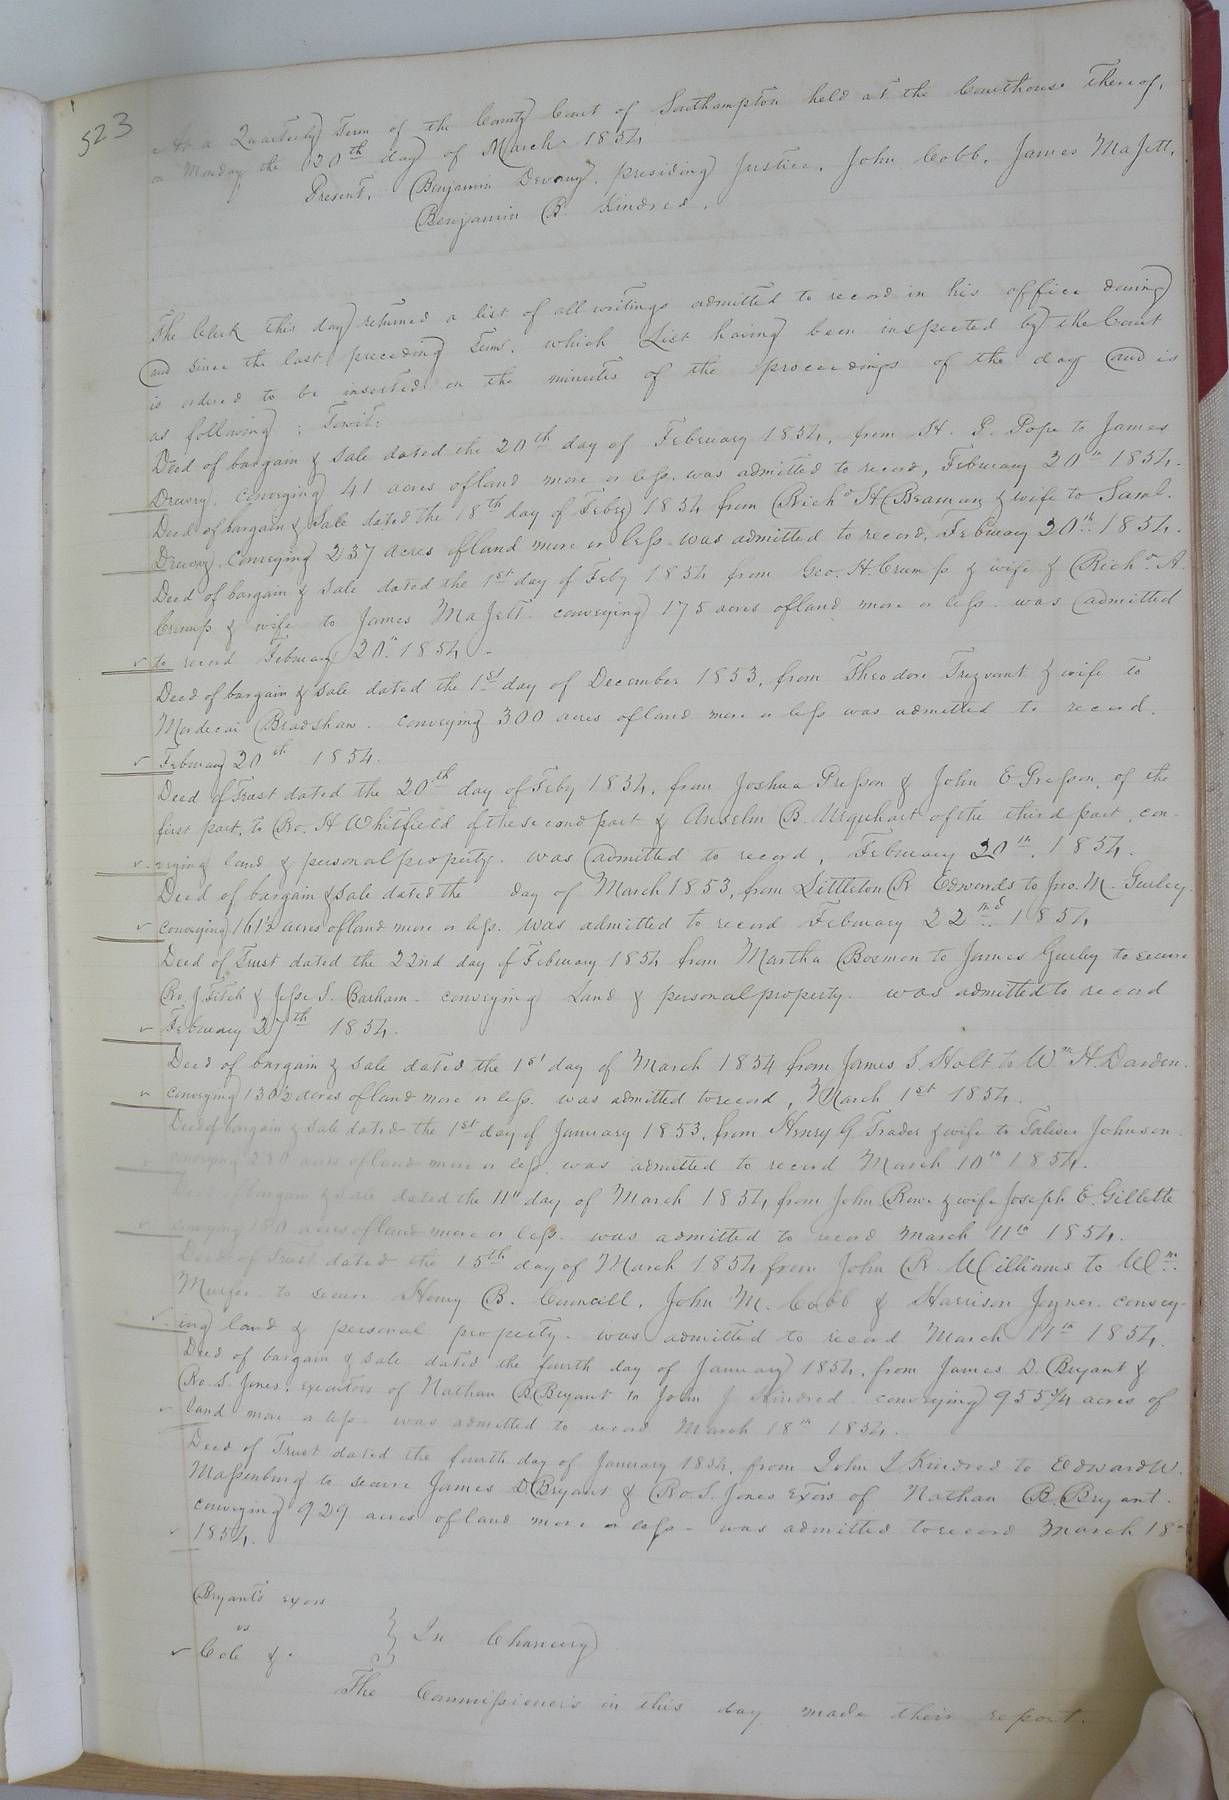 523
At a Quarterly Term of the County Court of Southampton held at the Courthouse thereof,
on Monday the 20th day of March 1854
Present, Benjamin Devany, presiding Justice, John Cobb, James Majett,
Benjamin B. Kindred.
The Clerk this day returned a list of all writings admitted to record in his office during
and since the last preceding Term, which List having been inspected by the Court
is ordered to be inserted on the minutes of the proceedings of the day and is
as following; Towit:
Deed of bargain & sale dated the 20th day of February 1854, from H. G. Pope to James
Drewry, conveying 41 acres of land more or less. was admitted to record, February 20th 1854.
Deed of bargain & Sale dated the 18th day of Feby 1854 from Richd H Beaman & wife to Saml.
Drewry, conveying 237 acres of land more or less was admitted to record, February 20th 1854.
Deed of bargain & Sale dated the 1st day of Feby 1854 from Geo. H. Crump & wife & Richd A.
Crump & wife to James Majett. conveying 175 acres of land more or less. was admitted
to record February 20th 1854.
Deed of bargain & sale dated the 1st day of December 1853, from Theodore Trezvant & wife to
Mordecai Bradshaw. conveying 300 acres of land more or less was admitted to record.
February 20th 1854.
Deed of Trust dated the 20th day of Feby 1854, from Joshua Presson & John E Presson, of the
first part, to Ro. H Whitfield of the second part & Anselm B. Urquhart of the third part, con-
veying land & personal property. was admitted to record, February 20th. 1854.
Deed of bargain & sale dated the day of March 1853, from Littleton R Edwards to Jno. M. Gurley.
conveying 161½ acres of land more or less. was admitted to record February 22nd. 1854
Deed of Trust dated the 22nd day of February 1854 from Martha Bozmon to James Gurley to secure
Ro. J. Fitch & Jesse S. Barham. conveying Land & personal property. was admitted to record
February 27th 1854.
Deed of bargain & sale dated the 1st day of March 1854 from James S. Holt to Wm H. Darden.
conveying 130½ acres of land more or less. was admitted to record, March 1st 1854.
Deed of bargain & sale dated the 1st day of January 1853, from Henry G Trader & wife to Johnson.
conveying 230 acres of land more or less. was admitted to record March 10th 1854.
Deed of bargain & sale dated the 11th day of March 1854 from John Rowe & wife Joseph E. Gillette
conveying 180 acres of land more or less. was admitted to record March 11th 1854.
Deed of Trust dated the 15th day of March 1854 from John R. Williams to Wm.
Murfee to secure Henry B. Councill, John M. Cobb & Harrison Joyner. convey-
ing land & personal property. was admitted to record March 17th 1854.
Deed of bargain & sale dated the fourth day of January 1854, from James D. Bryant &
Ro. S. Jones, executors of Nathan B. Bryant to John J Kindred conveying 955¼ acres of
land more or less. was admitted to record March 18th 1854.
Deed of Trust dated the fourth day of January 1854, from John J Kindred to Edward W.
Massenburg to secure James D. Bryant & Ro. S. Jones Exors of Nathan B. Bryant.
conveying 929 acres of land more or less - was admitted to record March 18th
1854.
Bryants exors
vs
Cole &.
} In Chancery
The Commissioners in this day made their report.